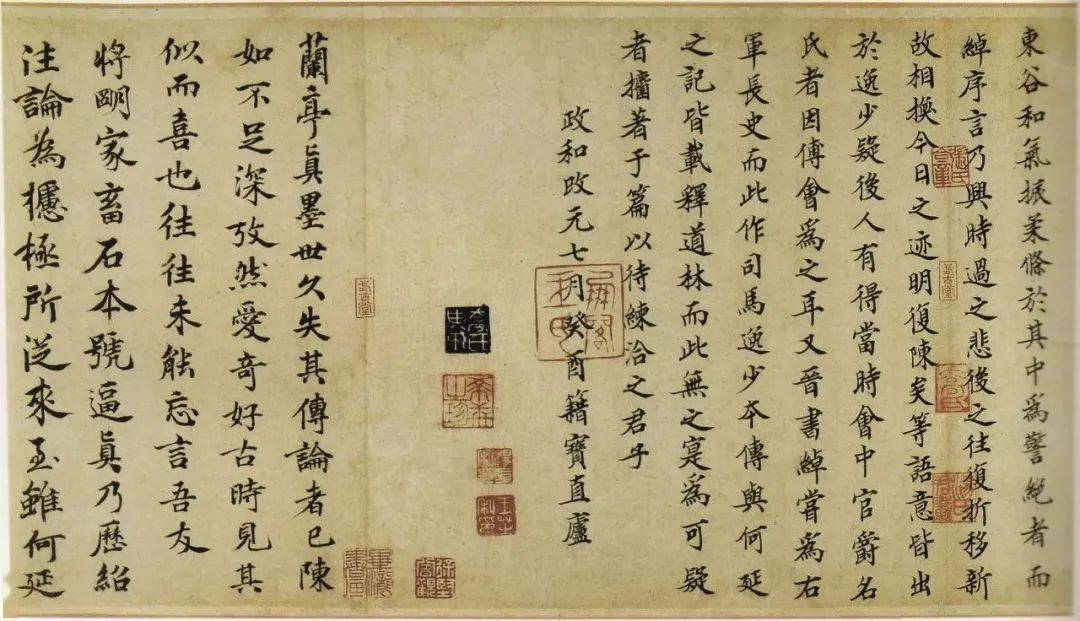 東谷和氣振柔條於其中爲警絶者而
綽序言乃興時過之悲後之往復折移新
故相換今日之迹明復陳矣等語意皆出
於逸少疑後人有得當時會中官爵名
氏者因傅會爲之耳又晉書綽嘗爲右
軍長史而此作司馬逸少本傳與何延
之記皆載釋道林而此無之寔爲可疑
者著于篇以待練洽之君子
政和改元七月癸酉籍寶直廬
蘭亭眞墨世久失其傳論者已陳
如不足深攷然愛竒好古時見其
似而喜也往往未能忘言吾友
將明家畜石本號逼眞乃歷紹
注論為攄極所從來至雖何延